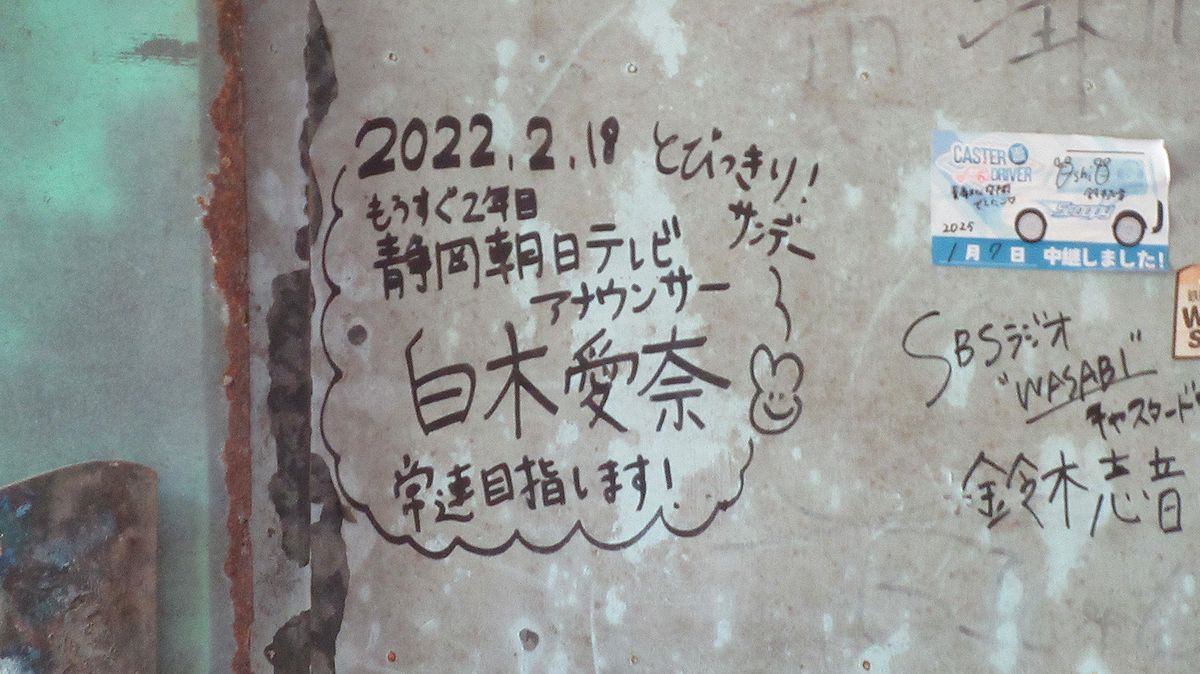 2022.2.19 とびっきり!
サンデー
もうすぐ2年目
静岡朝日テレビ
アナウンサー
白木愛奈
常連目指します!
CASTER
DRIVER
2025
1月7日 中継しました!
SBSラジオ
"WASABI"
キャスタード
鈴木志音